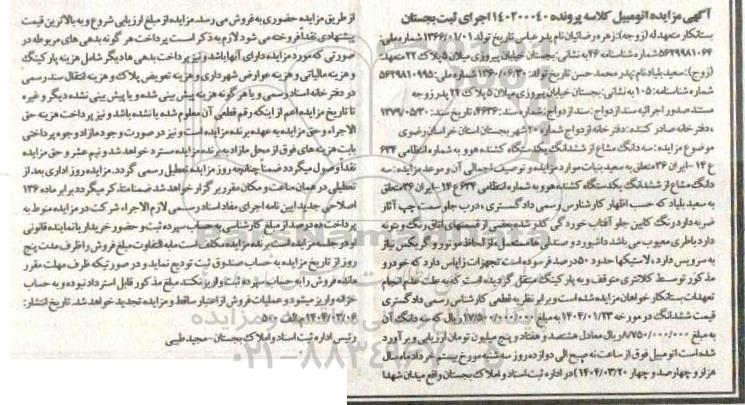 آگهی مزایده اتومبیل کلاسه پرونده ۱۴۰۲۰۰۰۴۰ اجرای ثبت بجستان
بستانکار متعهد له (زوجه): زهره رضائیان نام پدر عباس تاریخ تولد: ۱۳۶۶/۰۱/۰۱ شماره ملی:
۵۶۲۹۹۸۱۰۶۴ شماره شناسنامه ۴۶ به نشانی: بجستان خیابان پیروزی میلان ۵ پلاک ۲۲ متعهد:
(زوج): سعید بلیاد نام پدر محمد حسن تاریخ تولد: ۱۳۶۰/۰۶/۳۰ شماره ملی: ۵۶۲۹۸۱۰۹۹۵
شماره شناسنامه: ۱۰۵ به نشانی: بجستان خیابان پیروزی میلان ۵ پلاک ۲۴ پدر زوجه
مستند صدور اجرائیه سند ازدواج: سند ازدواج: شماره سند: ۴۶۳۶، تاریخ سند: ۱۳۷۹/۰۵/۳۰
، دفترخانه صادر کننده: دفترخانه ازدواج شماره ۲۰ شهر بجستان استان خراسان رضوی
موضوع مزایده: سه دانگ مشاع از ششدانگ یکدستگاه کشنده هوو به شماره انتظامی ۶۳۴
ع ۱۴ - ایران ۳۶ متعلق به سعید بنیات موارد مزایده و توصیف اجمالی آن و موعد مزایده: سه
دانگ مشاع از ششدانگ یکدستگاه کشنده هوو به شماره انتظامی ۶۳۴ ع ۱۴ - ایران ۳۶ متعلق
به سعید بلیاد که حسب اظهار کارشناس رسمی دادگستری، درب جلو سمت چپ آثار
ضربه دارد رنگ کابین جلو آفتاب خوردگی کدر شده بعضی از قسمتهای اتاق رنگ و بتونه
دارد باطری معیوب می باشد داشبورد و صندلی ها مستعمل از لحاظ موتور و گیربکس نیاز
به سرویس دارد، لاستیکها حدود ۵۰ درصد فرسوده است تجهیزات زاپاس دارد که خودرو
مذکور توسط کلانتری متوقف و به پارکینگ منتقل گردیده است که به علت عدم انجام
تعهدات بستانکار خواهان مزایده شده است و برابر نظریه قطعی کارشناس رسمی دادگستری
قیمت ششدانگ در مورخه ۱۴۰۴/۰۱/۲۳ به مبلغ ۱۷/۵۰۰/۰۰۰/۰۰۰ ریال که سه دانگ آن
به مبلغ ۸/۷۵۰/۰۰۰/۰۰۰ ریال معادل هشتصد و هفتاد و پنج میلیون تومان ارزیابی و برآورد
شده است اتومبیل فوق از ساعت نه صبح الی دوازده روز سه شنبه مورخ بیستم خرداد ماه سال
هزار و چهارصد و چهار ۱۴۰۴/۰۳/۲۰) در اداره ثبت اسناد و املاک بجستان واقع میدان شهدا
از طریق مزایده حضوری به فروش می رسد. مزایده از مبلغ ارزیابی شروع و به بالاترین قیمت
پیشنهادی نقدا فروخته می شود لازم به ذکر است پرداخت هر گونه بدهی های مربوطه در
صورتی که مورد مزایده دارای آنها باشد و نیز پرداخت بدهی ها دیگر شامل هزینه پارکینگ
و هزینه مالیاتی و هزینه عوارض شهرداری و هزینه تعویض پلاک و هزینه انتقال سند رسمی
در دفترخانه اسناد رسمی و یا هر گونه هزینه پیش بینی شده و یا پیش بینی نشده دیگر و غیره
تا تاریخ مزایده اعم از اینکه رقم قطعی آن معلوم شده یا نشده باشد و نیز پرداخت هزینه حق
الاجراء و حق مزایده به عهده برنده مزایده است و نیز در صورت وجود مازاد وجوه پرداختی
بابت هزینه های فوق از محل مازاد به برنده مزایده مسترد خواهد شد و نیم عشر و حق مزایده
نقدا وصول میگردد ضمناً چنانچه روز مزایده تعطیل رسمی گردد. مزایده روز اداری بعد از
تعطیلی در همان ساعت و مکان مقرر برگزار خواهد شد ضمنا متذکر میگردد برابر ماده ۱۳۶
اصلاحی جدید آیین نامه اجرای مفاد اسناد رسمی لازم الاجراء شرکت در مزایده منوط به
پرداخت ده درصد از مبلغ کارشناسی به حساب سپرده ثبت و حضور خریدار یا نماینده قانونی
او در جلسه مزایده است برنده مزایده مکلف است مابه التفاوت مبلغ فروش را ظرف مدت پنج
روز از تاریخ مزایده به حساب صندوق ثبت تودیع نماید و در صورتیکه ظرف مهلت مقرر
مانده فروش را به حساب سپرده ثبت واریز نکند مبلغ مذکور قابل استرداد نبوده و به حساب
خزانه واریز میشود و عملیات فروش از اعتبار ساقط و مزایده تجدید خواهد شد. تاریخ انتشار:
۱۴۰۴/۰۳/۰۶ م الف ۵۰۰
رئیس اداره ثبت اسناد و املاک بجستان - مجید طیبی